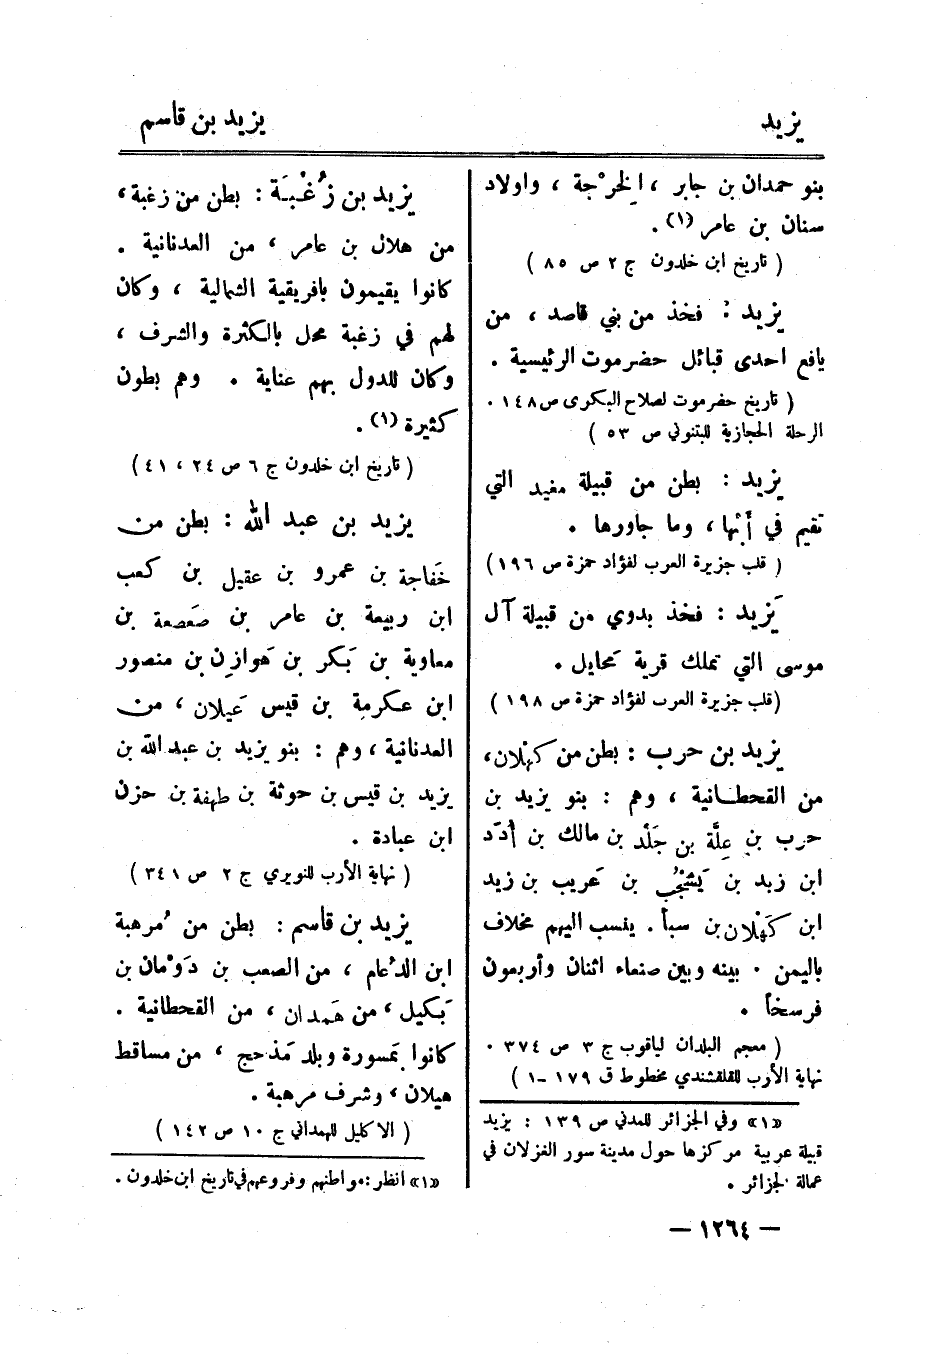 يزيد
يزيد بن قاسم
بنو حمدان بن جابر ، الخرْجة ، واولاد
سنان بن عامر (١) .
( تاريخ ابن خلدون ج ٢ ص ٨٥ )
يزيد : فخذ من بني قاصد ، من
يافع احدى قبائل حضرموت الرئيسية .
( تاريخ حضرموت لصلاح البكرى ص ١٤٨ .
الرحلة الحجازية للبتنوني ص ٥٣ )
يزيد : بطن من قبيلة مغيد التي
تقيم في أبْها ، وما جاورها .
( قلب جزيرة العرب لفؤاد حمزة ص ١٩٦ )
يَزيد : فخذ بدوي من قبيلة آل
موسى التي تملك قرية مَحايل .
(قلب جزيرة العرب لفؤاد حمزة ص ١٩٨ )
يزيد بن حرب : بطن من كهْلان ،
من القحطانية ، وهم : بنو يزيد بن
حرب بن عِلَّة بن جَلْد بن مالك بن أُدَد
ابن زيد بن يَشْجُب بن عَريب بن زيد
ابن كَهْلان بن سبأ . ينسب اليهم مخلاف
باليمن . بينه وبين صنعاء اثنان وأربعون
فرسخاً .
( معجم البلدان لياقوب ج ٣ ص ٣٧٤ .
نهاية الأرب للقلقشندي مخطوط ق ١٧٩ -١ )
«١» وفي الجزائر للمدني ص ١٣٩ : يزيد
قبيلة عربية مركزها حول مدينة سور الغزلان في
عمالة الجزائر .
يزيد بن زُغْبَة : بطن من زغبة ،
من هلال بن عامر ، من العدنانية .
كانوا يقيمون بافريقية الشمالية ، وكان
لهم في زغبة محل بالكثرة والشرف ،
وكان للدول بهم عناية . وهم بطون
كثيرة (١) .
( تاريخ ابن خلدون ج ٦ ص ٢٤ ، ٤١ )
يزيد بن عبد الله : بطن من
خَفاجة بن عمرو بن عقيل بن كعب
ابن ربيعة بن عامر بن صَعصعة بن
معاوية بن بَكر بن هَوازِن بن منصور
ابن عكرمة بن قيس عَيلان ، من
العدنانية ، وهم : بنو يزيد بن عبد الله بن
يزيد بن قيس بن حوثة بن طهفة بن حزن
ابن عبادة .
( نهاية الأرب للنويري ج ٢ ص ٣٤١ )
يزيد بن قاسم : بطن من مُرهبة
ابن الدعام ، من الصعب بن دَوْمان بن
بَكيل ، من هَمدان ، من القحطانية .
كانوا بمَسورة وبلد مَذحج ، من مساقط
هيلان ، وشرف مرهبة .
( الاكليل للهمداني ج ١٠ ص ١٤٢ )
«١» انظر : مواطنهم وفروعهم في تاريخ ابن خلدون .
— ١٢٦٤ —